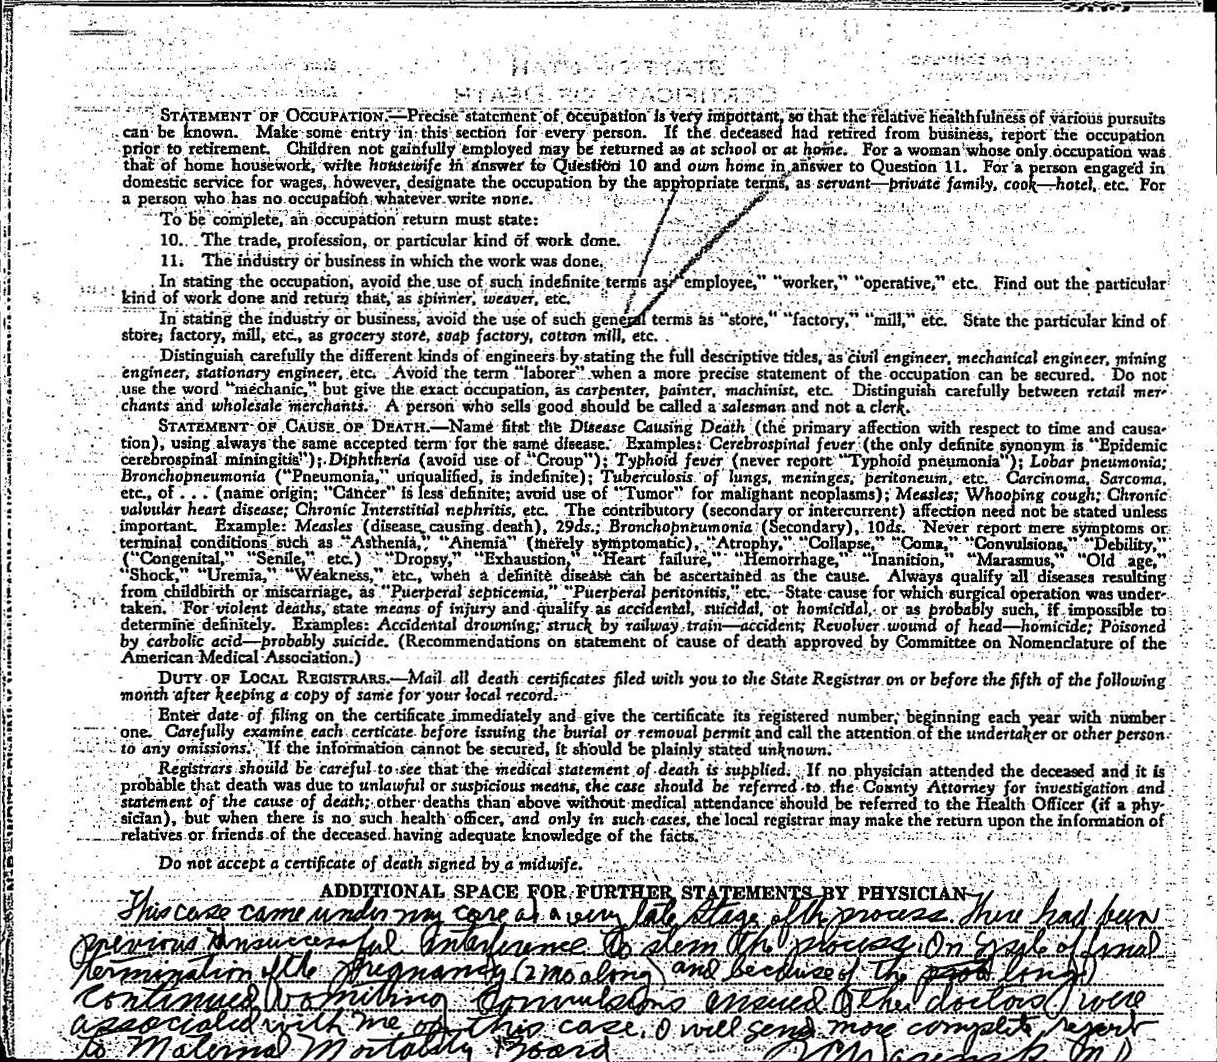 STATEMENT OF OCCUPATION.—Precise statement of occupation is very important, so that the relative healthfulness of various pursuits
can be known. Make some entry in this section for every person. If the deceased had retired from business, report the occupation
prior to retirement. Children not gainfully employed may be returned as at school or at home. For a woman whose only occupation was
that of home housework, write housewife in answer to Question 10 and own home in answer to Question 11. For a person engaged in
domestic service for wages, however, designate the occupation by the appropriate terms, as servant—private family, cook—hotel, etc. For
a person who has no occupation whatever write none.
To be complete, an occupation return must state:
10. The trade, profession, or particular kind of work done.
11. The industry or business in which the work was done.
In stating the occupation, avoid the use of such indefinite terms as "employee," "worker," "operative," etc. Find out the particular
kind of work done and return that, as spinner, weaver, etc.
In stating the industry or business, avoid the use of such general terms as "store," "factory," "mill," etc. State the particular kind of
store, factory, mill, etc., as grocery store, soap factory, cotton mill, etc.
Distinguish carefully the different kinds of engineers by stating the full descriptive titles, as civil engineer, mechanical engineer, mining
engineer, stationary engineer, etc. Avoid the term "laborer" when a more precise statement of the occupation can be secured. Do not
use the word "mechanic," but give the exact occupation, as carpenter, painter, machinist, etc. Distinguish carefully between retail mer-
chants and wholesale merchants. A person who sells good should be called a salesman and not a clerk.
STATEMENT OF CAUSE OF DEATH.—Name first the Disease Causing Death (the primary affection with respect to time and causa-
tion), using always the same accepted term for the same disease. Examples: Cerebrospinal fever (the only definite synonym is "Epidemic
cerebrospinal miningitis"); Diphtheria (avoid use of "Croup"); Typhoid fever (never report "Typhoid pneumonia"); Lobar pneumonia;
Bronchopneumonia ("Pneumonia," unqualified, is indefinite); Tuberculosis of lungs, meninges, peritoneum, etc. Carcinoma, Sarcoma,
etc., of . . . (name origin; "Cancer" is less definite; avoid use of "Tumor" for malighant neoplasms); Measles; Whooping cough; Chronic
valvular heart disease; Chronic Interstitial nephritis, etc. The contributory (secondary or intercurrent) affection need not be stated unless
important. Example: Measles (disease causing death), 29ds.; Bronchopneumonia (Secondary), 10ds. Never report mere symptoms or
terminal conditions such as "Asthenia," "Anemia" (merely symptomatic), "Atrophy," "Collapse," "Coma," "Convulsions," "Debility,"
("Congenital," "Senile," etc.) "Dropsy," "Exhaustion," "Heart failure," "Hemorrhage," "Inanition," "Marasmus," "Old age,"
"Shock," "Uremia," "Weakness," etc., when a definite disease can be ascertained as the cause. Always qualify all diseases resulting
from childbirth or miscarriage, as "Puerperal septicemia," "Puerperal peritonitis," etc. State cause for which surgical operation was under-
taken. For violent deaths, state means of injury and qualify as accidental, suicidal, or homicidal, or as probably such, if impossible to
determine definitely. Examples: Accidental drowning; struck by railway train—accident; Revolver wound of head—homicide; Poisoned
by carbolic acid—probably suicide. (Recommendations on statement of cause of death approved by Committee on Nomenclature of the
American Medical Association.)
DUTY OF LOCAL REGISTRARS.—Mail all death certificates filed with you to the State Registrar on or before the fifth of the following
month after keeping a copy of same for your local record.
Enter date of filing on the certificate immediately and give the certificate its registered number, beginning each year with number
one. Carefully examine each certicate before issuing the burial or removal permit and call the attention of the undertaker or other person
to any omissions. If the information cannot be secured, it should be plainly stated unknown.
Registrars should be careful to see that the medical statement of death is supplied. If no physician attended the deceased and it is
probable that death was due to unlawful or suspicious means, the case should be referred to the County Attorney for investigation and
statement of the cause of death; other deaths than above without medical attendance should be referred to the Health Officer (if a phy-
sician), but when there is no such health officer, and only in such cases, the local registrar may make the return upon the information of
relatives or friends of the deceased having adequate knowledge of the facts.
Do not accept a certificate of death signed by a midwife.
ADDITIONAL SPACE FOR FURTHER STATEMENTS BY PHYSICIAN
This case came under my care at a very late stage of the process. There had been
previous unsuccessful interference to stem the process. On
termination of the pregnancy (2 mos along) and because of the long
continued vomiting convulsions ensued. Other doctors were
associated with me on this case. I will send more complete report
to Maternal Mortality Board M.D.